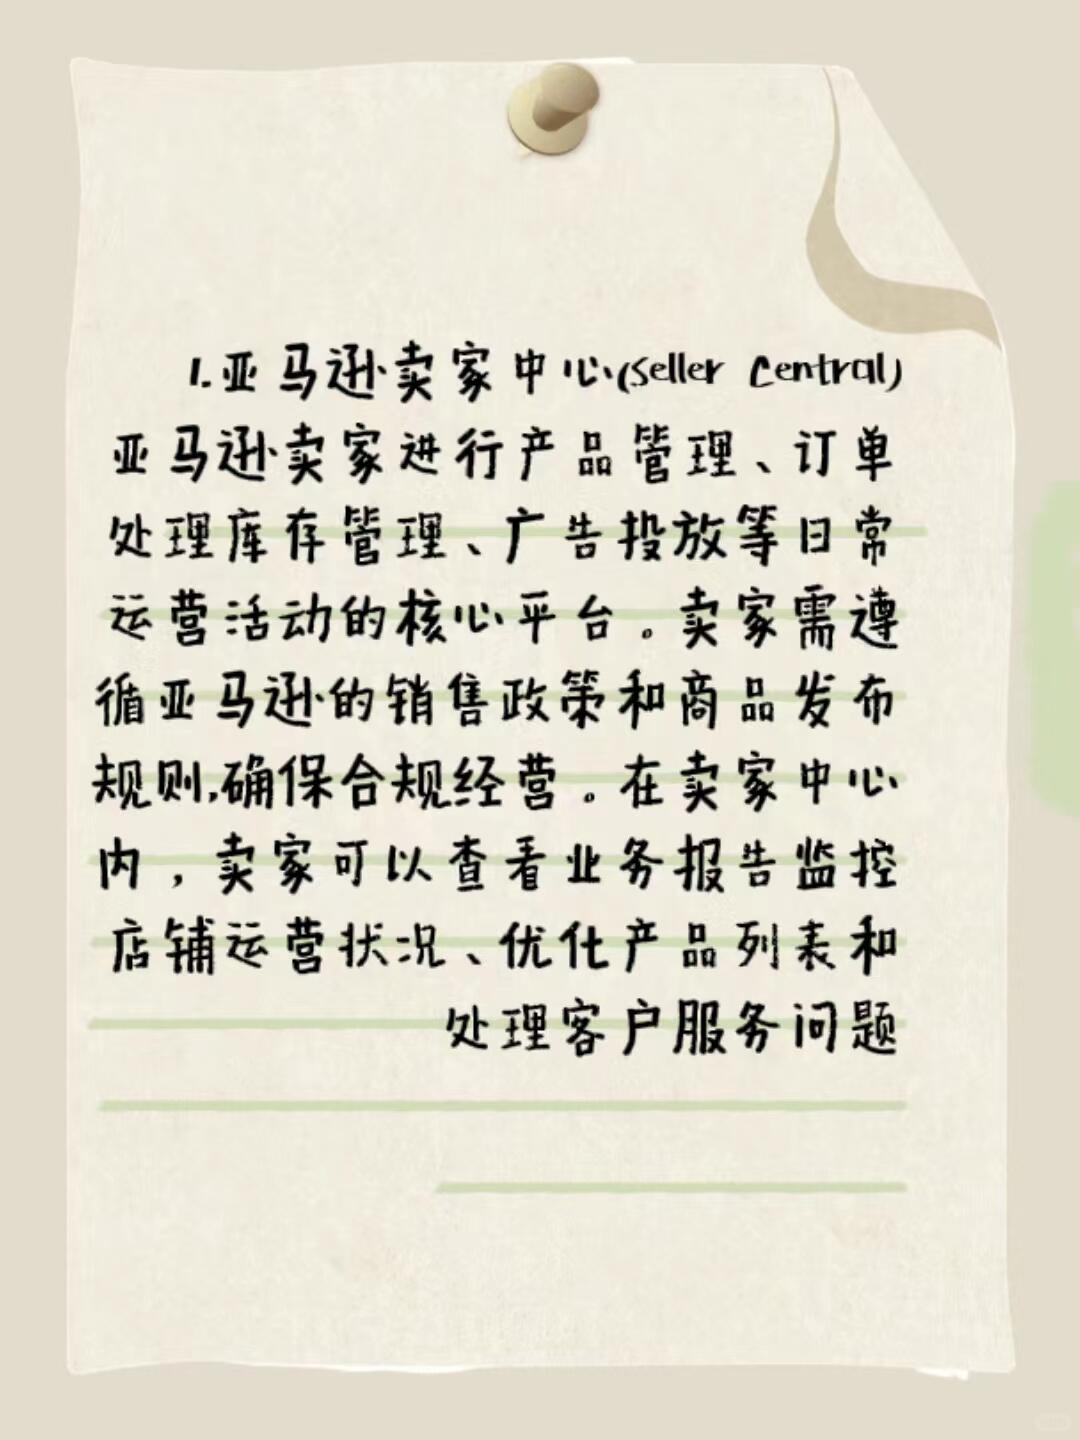 1.亚马逊卖家中心(Seller Central)
亚马逊卖家进行产品管理、订单
处理库存管理、广告投放等日常
运营活动的核心平台。卖家需遵
循亚马逊的销售政策和商品发布
规则,确保合规经营。在卖家中心
内，卖家可以查看业务报告监控
店铺运营状况、优化产品列表和
处理客户服务问题